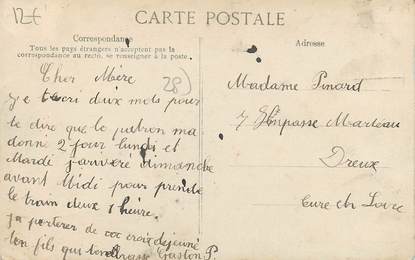 12€
CARTE POSTALE
Correspondance
Tous les pays étrangers n'acceptent pas la
correspondance au recto, se renseigner à la poste.
Cher Mère
28)
je tecri dix mots pour
te dire que le patron ma
donne 2 jour lundi et
Mardi jarriveré dimanche
avant Midi pour prende
le train deux 1 heure.
ja porterer de coc croit dejeuné
ton fils qui tembrasse Gaston P.
Adresse
Madame Pinard
7 Impasse Marteau
Dreux
Eure et Loire